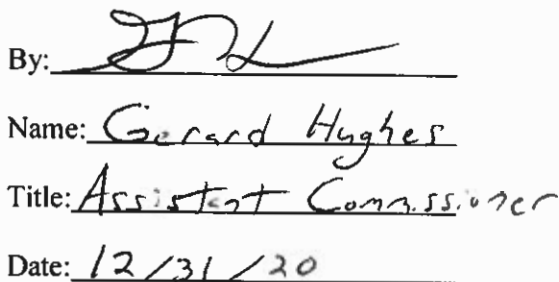 By:
Name: Gerard Hughes
Title: Assistant Commissioner
Date: 12/31/20